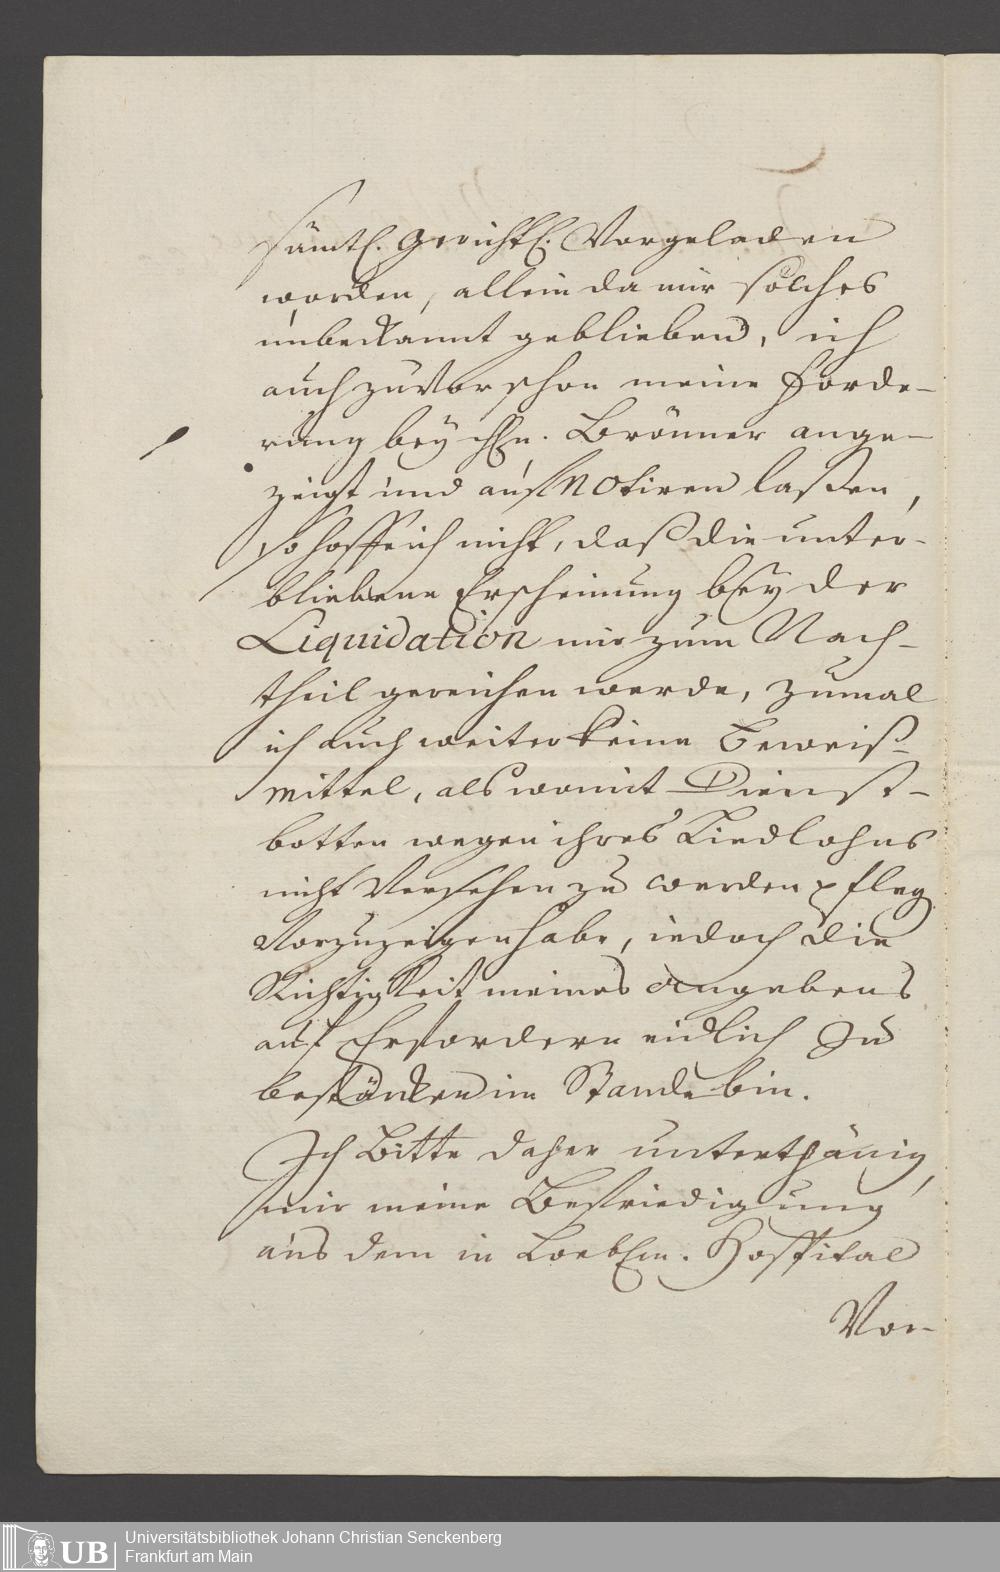 sämtl. gerichtl. Vorgeladen
worden, allein da mir solches
unbekannt geblieben, ich
auch zuvor schon meine Forde-
rung bey Hn. Brönner ange-
zeigt und auf Notiren laßen,
so hoffe ich nicht, daß die unter-
bliebene Erscheinung bey der
Liquidation mir zum Nach-
theil gereichen werde, zumal
ich auch weiter keine Beweiß-
mittel, als womit Dienst-
botten wegen ihres Liedlohns
nicht versehen zu werden pfleg
vorzuzeigen habe, iedoch die
Richtigkeit meines angebens
auf Erfordern eidlich zu
bestärcken im Stande bin.
Ich Bitte daher unterthänig,
mir meine Befriedigung
aus dem in Loebl. Hospital
Vor-
Universitätsbibliothek Johann Christian Senckenberg
Frankfurt am Main
UB